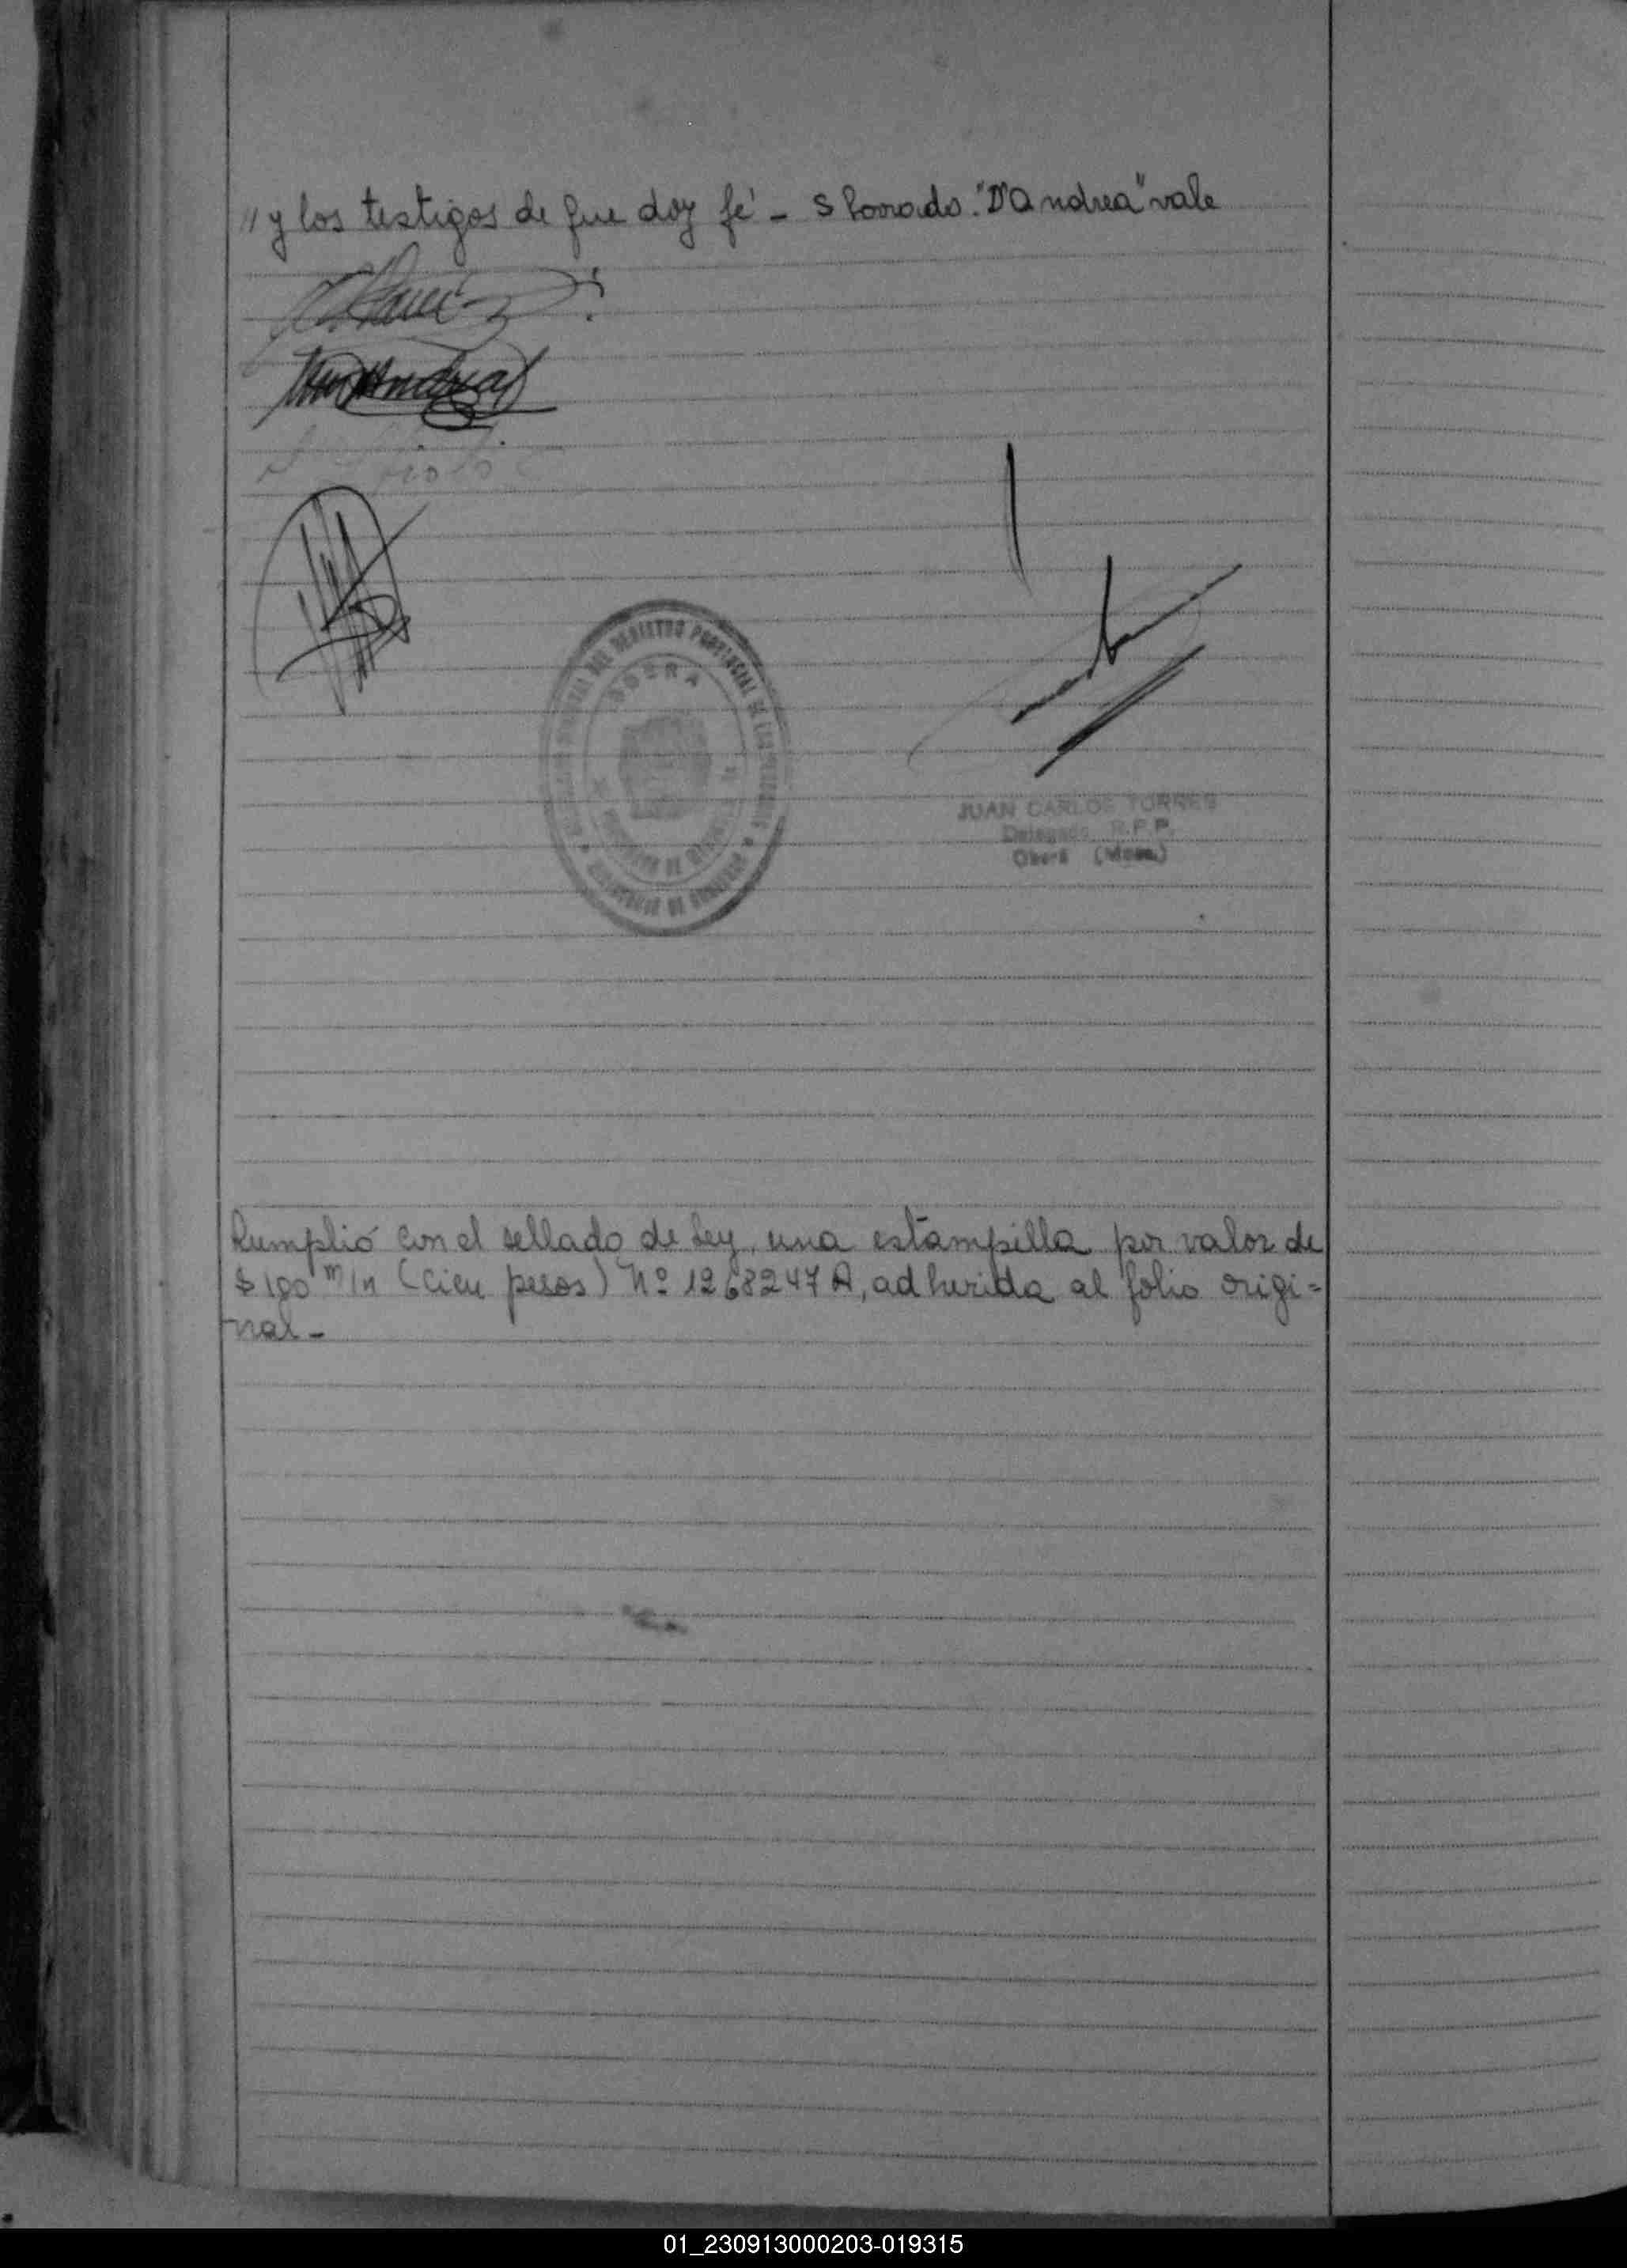 " y los testigos de que doy fé - s borrado. "D'Andrea" vale
OBERA
JUAN CARLOS TORRES
Delegado R.P.P.
Oberá (Mnes.)
Cumplió con el sellado de Ley, una estampilla por valor de
$ 100 m/n (cien pesos) Nº 1268247 A, adherida al folio origi=
nal -
01_230913000203-019315